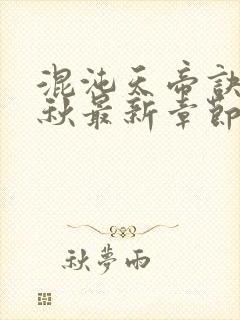 混沌天帝訣
秋最新章節
秋夢雨